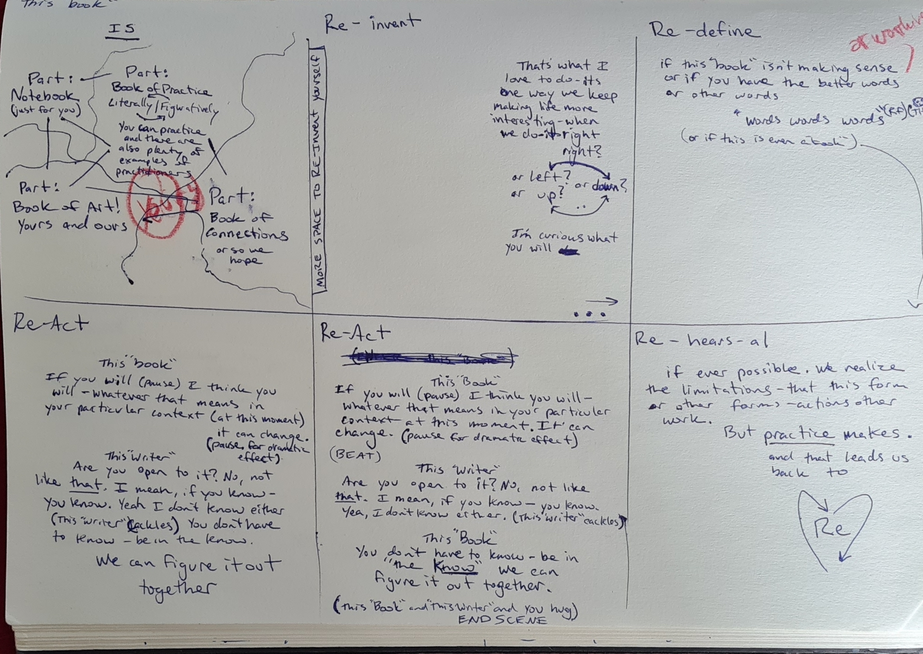 this book"
IS
Part:
Notebook
(just for you)
Part:
Book of Practice
Literally/Figuratively
You can practice
and there are
also plenty of
examples of
practitioners
Part:
Book of Art!
Yours and ours
Part:
Book of
Connections
or so we
hope
MORE SPACE TO RE-INVENT YOURSELF
Re-invent
That's what I
love to do-its
one way we keep
making life more
interesting-when
we do-it-right
right?
or left?
or up? or down?
I'm curious what
you will
...
Re-define
if this "book" isn't making sense
or if you have the better words
or other words
words words words
(or if this is even a book)
Re-Act
This "book"
If you will (pause) I think you
will - whatever that means in
your particular context (at this moment)
it can change.
(pause for dramatic
effect).
This "Writer"
Are you open to it? No, not
like that. I mean, if you know-
You know. Yeah I don't know either
(This "Writer" cackles) You don't have
to know - be in the know.
We can figure it out
together
Re-Act
This "Book"
If you will (pause) I think you will-
whatever that means in your particular
context at this moment. It can
change. (pause for dramatic effect)
(BEAT)
This "Writer"
Are you open to it? No, not like
that. I mean, if you know - you know.
Yea, I don't know either. (This "Writer" cackles)
This "Book"
You don't have to know - be in
"the Know" We can
figure it out together.
(This "Book" and "This Writer" and You hug)
END SCENE
Re-hears-al
if ever possible. We realize
the limitations - that this form
or other forms - actions other
work.
But practice makes.
and that leads us
back to
Re